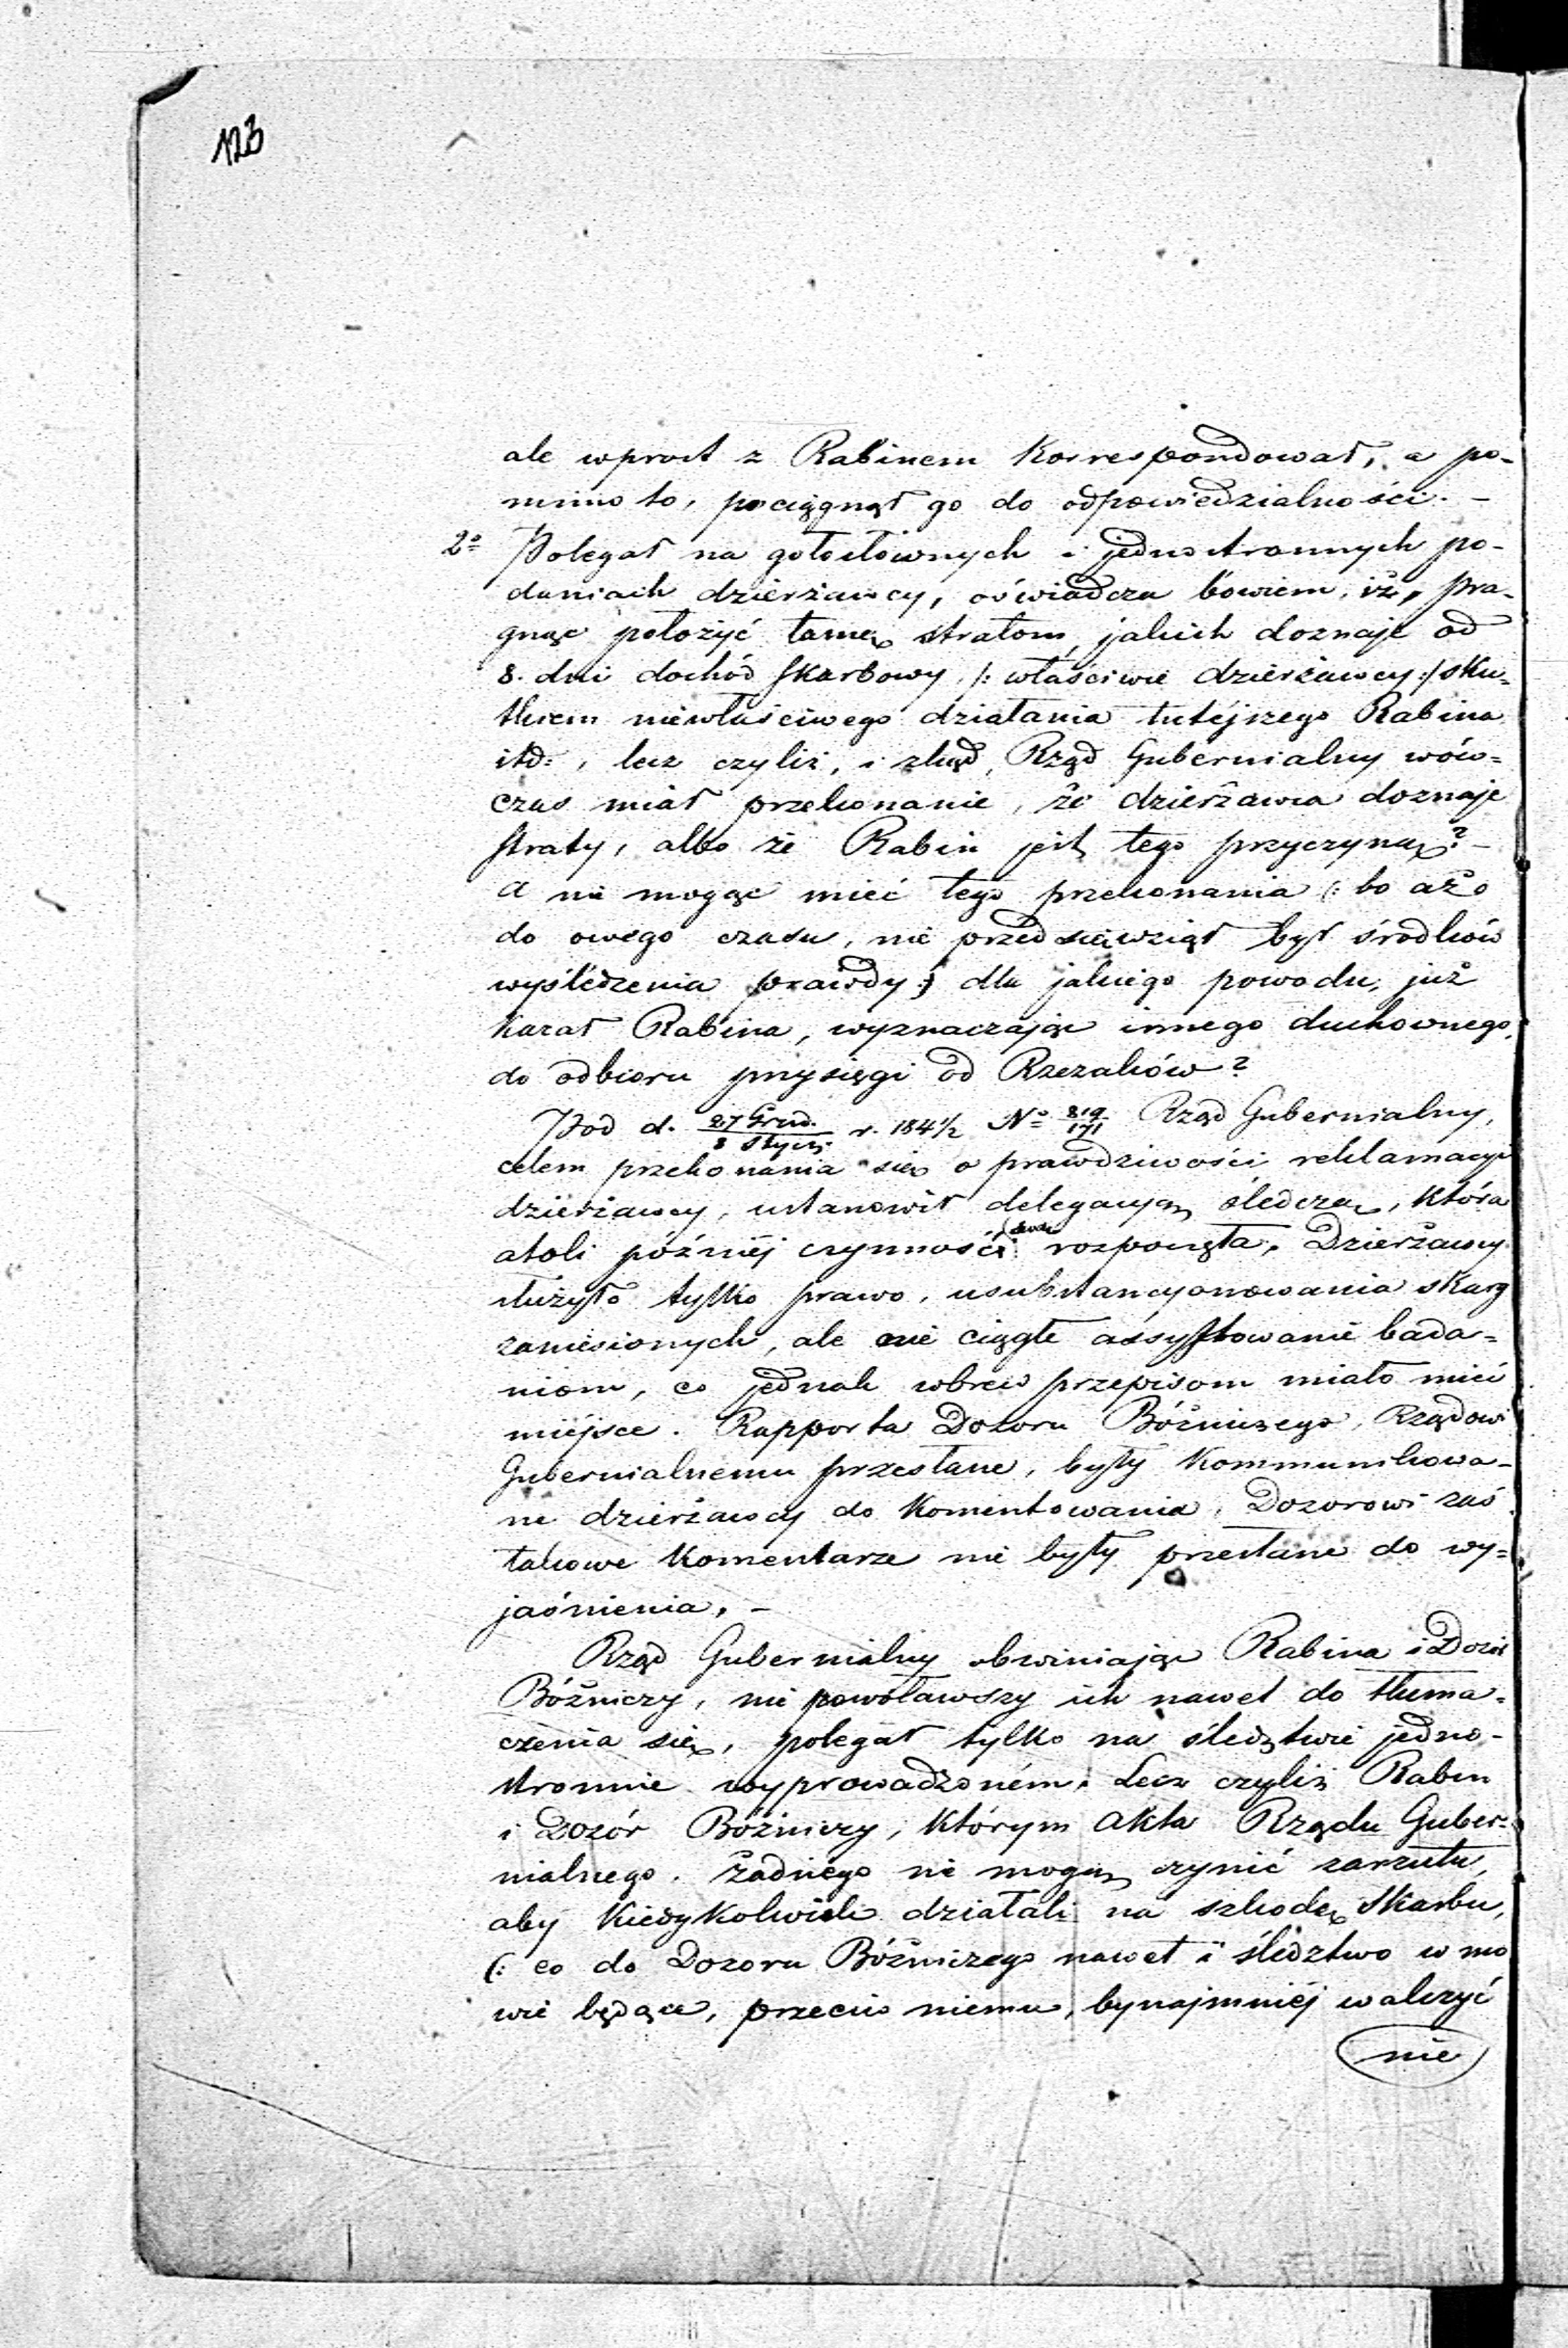 123
ale wprost z Rabinem Korrespondował, a po-
mimo to, pociągnął go do odpowiedzialności. -
2o Polegał na gołosłównych i jednostronnych po-
daniach dzierżawcy, oświadcza bowiem, iż, pra-
gnąc położyć tamę stratom, jakich doznaje od
8. dni dochód Skarbowy, /: właściwie dzierżawcy :/ sku-
tkiem niewłaściwego działania tutéjszego Rabina
itd: , lecz czyliż, i zkąd, Rząd Gubernialny wów=
czas miał przekonanie, że dzierżawca doznaje
straty, albo że Rabin jest tego przyczyną? -
A nie mogąc mieć tego przekonania (: bo aż
do owego czasu, nie przedsięwziął był środków
wyśledzenia prawdy :) dla jakiego powodu, już
karał Rabina, wyznaczając innego duchownego,
do odbioru przysięgi od Rzezaków?
Pod d. 27 Grud./8 Stycz. r. 184½ No 819/171 Rząd Gubernialny,
celem przekonania się o prawdziwości reklamacyi
dzierżawcy, ustanowił delegacyą śledczą, która
atoli późniéj czynności rozpoczęła. Dzierżawcy
służyło tylko prawo, usubstancyonowania skarg
zaniesionych, ale nie ciągłe assystowanie bada=
niom, co jednak wbrew przepisom miało mieć
miéjsce. Rapporta Dozoru Bóżniczego, Rządowi
Gubernialnemu przesłane, były kommunikowa-
ne dzierżawcy do komentowania, Dozorowi zaś
takowe komentarze nie były przesłane do wy=
jaśnienia. -
Rząd Gubernialny obwiniając Rabina i Dozór
Bóżniczy, nie powoławszy ich nawet do tłuma=
czenia się, polegał tylko na śledztwie jedno-
stronnie wyprowadzoném. Lecz czyliż Rabin
i Dozór Bóżniczy, którym Akta Rządu Guber=
nialnego. żadnego nie mogą czynić zarzutu,
aby kiedykolwiek działali na szkodę Skarbu,
(: co do Dozoru Bóżniczego nawet i śledztwo w mo
wie będące, przeciw niemu, bynajmniéj walczyć
nie